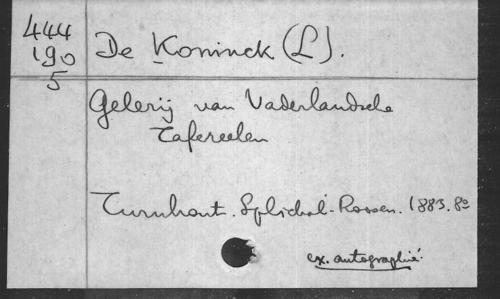 444
190
5
De Koninck (L).
Gelerij van Vaderlandsche
Tafereelen
Turnhout. Splichal-Roosen. 1883. 8º
ex. autographié.